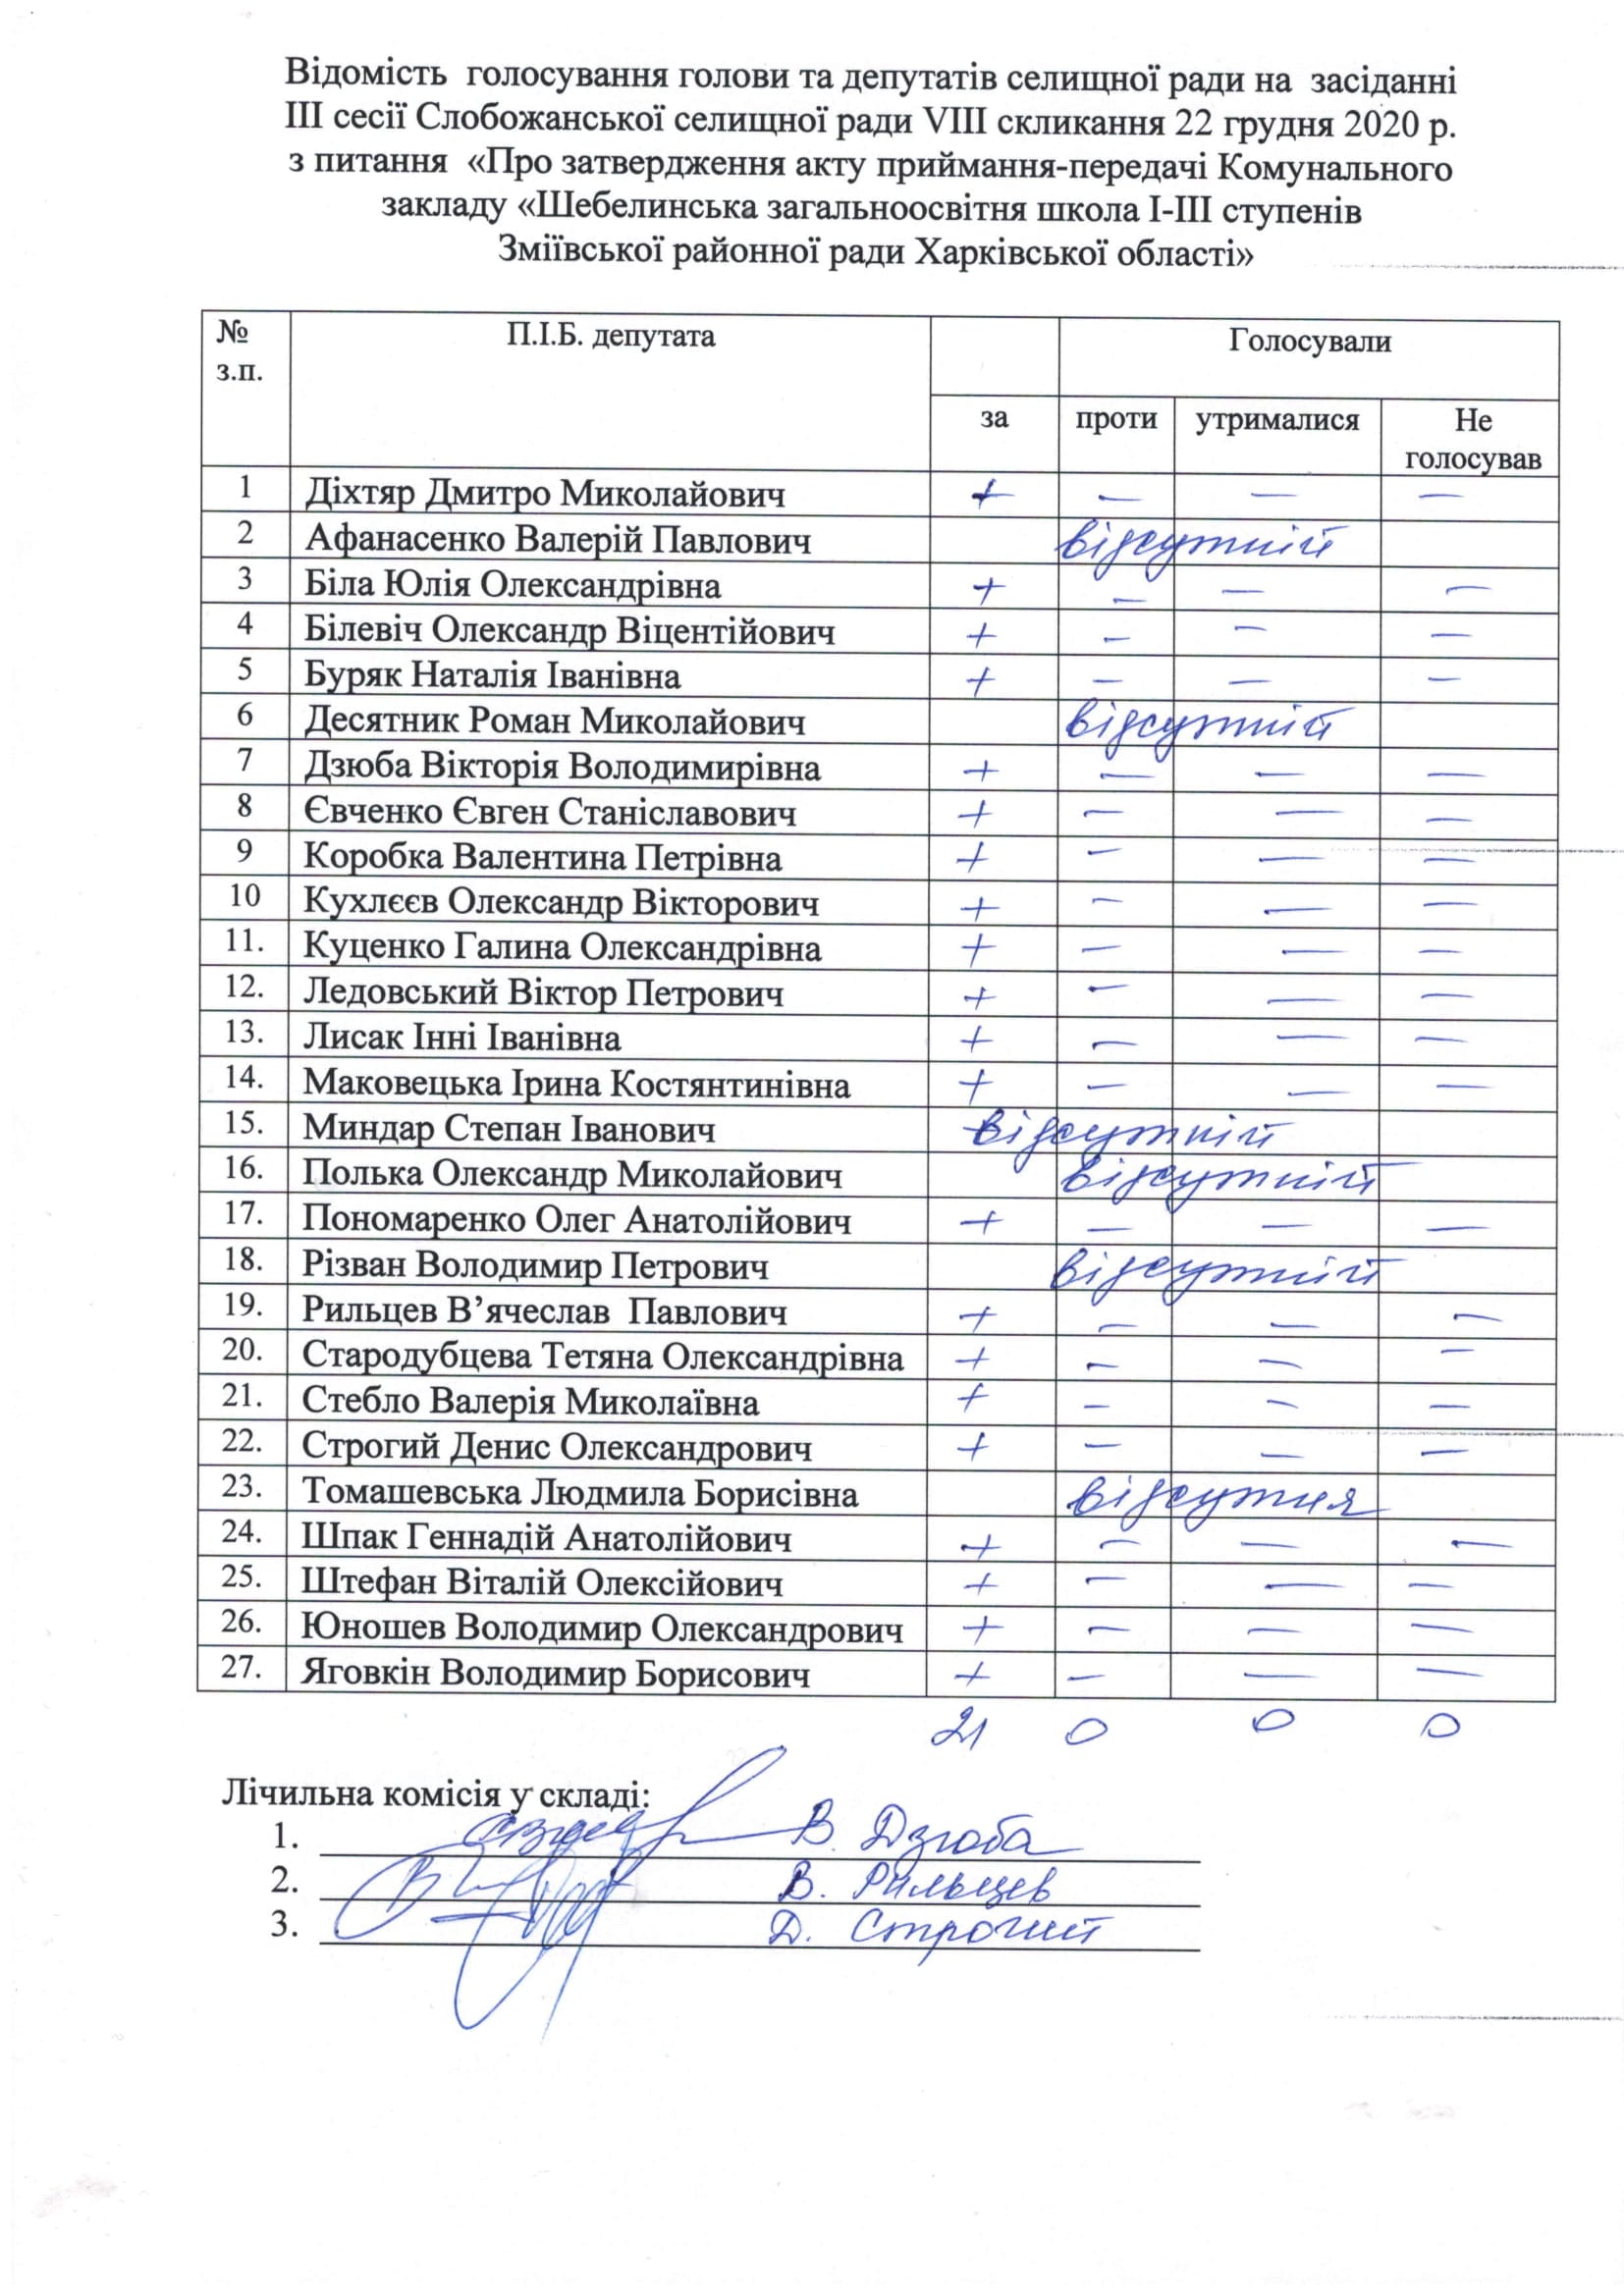 Відомість голосування голови та депутатів селищної ради на засіданні
III сесії Слобожанської селищної ради VIII скликання 22 грудня 2020 р.
з питання «Про затвердження акту приймання-передачі Комунального
закладу «Шебелинська загальноосвітня школа І-ІІІ ступенів
Зміївської районної ради Харківської області»
№ з.п. П.І.Б. депутата Голосували
за проти утрималися Не голосував
1 Діхтяр Дмитро Миколайович + — — —
2 Афанасенко Валерій Павлович відсутній
3 Біла Юлія Олександрівна + — — —
4 Білевіч Олександр Віцентійович + — — —
5 Буряк Наталія Іванівна + — — —
6 Десятник Роман Миколайович відсутній
7 Дзюба Вікторія Володимирівна + — — —
8 Євченко Євген Станіславович + — — —
9 Коробка Валентина Петрівна + — — —
10 Кухлєєв Олександр Вікторович + — — —
11. Куценко Галина Олександрівна + — — —
12. Ледовський Віктор Петрович + — — —
13. Лисак Інні Іванівна + — — —
14. Маковецька Ірина Костянтинівна + — — —
15. Миндар Степан Іванович відсутній
16. Полька Олександр Миколайович відсутній
17. Пономаренко Олег Анатолійович + — — —
18. Різван Володимир Петрович відсутній
19. Рильцев В’ячеслав Павлович + — — —
20. Стародубцева Тетяна Олександрівна + — — —
21. Стебло Валерія Миколаївна + — — —
22. Строгий Денис Олександрович + — — —
23. Томашевська Людмила Борисівна відсутня
24. Шпак Геннадій Анатолійович + — — —
25. Штефан Віталій Олексійович + — — —
26. Юношев Володимир Олександрович + — — —
27. Яговкін Володимир Борисович + — — —
21 0 0 0
Лічильна комісія у складі:
1. В. Дзюба
2. В. Рильцев
3. Д. Строгий